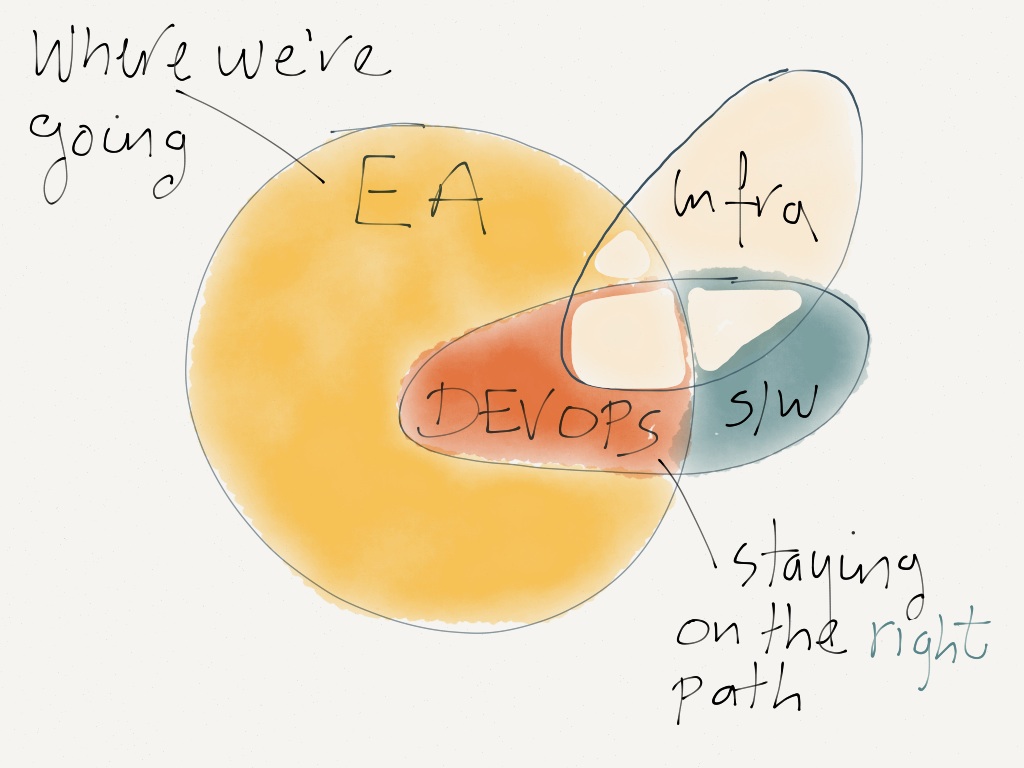 Where we've
going
EA
Infra
DEVOPS
S/W
staying
on the right
path